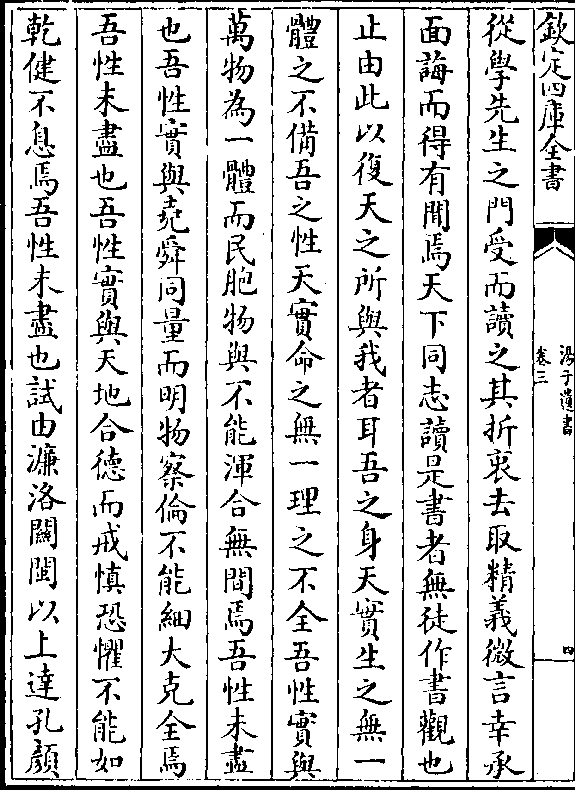 欽定四庫全書
湯子遺書
卷三
四
從學先生之門受而讀之其折衷去取精義微言幸承
面誨而得有聞焉天下同志讀是書者無徒作書觀也
止由此以復天之所與我者耳吾之身天實生之無一
體之不備吾之性天實命之無一理之不全吾性實與
萬物為一體而民胞物與不能渾合無間焉吾性未盡
也吾性實與堯舜同量而明物察倫不能細大克全焉
吾性未盡也吾性實與天地合德而戒慎恐懼不能如
乾健不息焉吾性未盡也試由濂洛關閩以上達孔顏